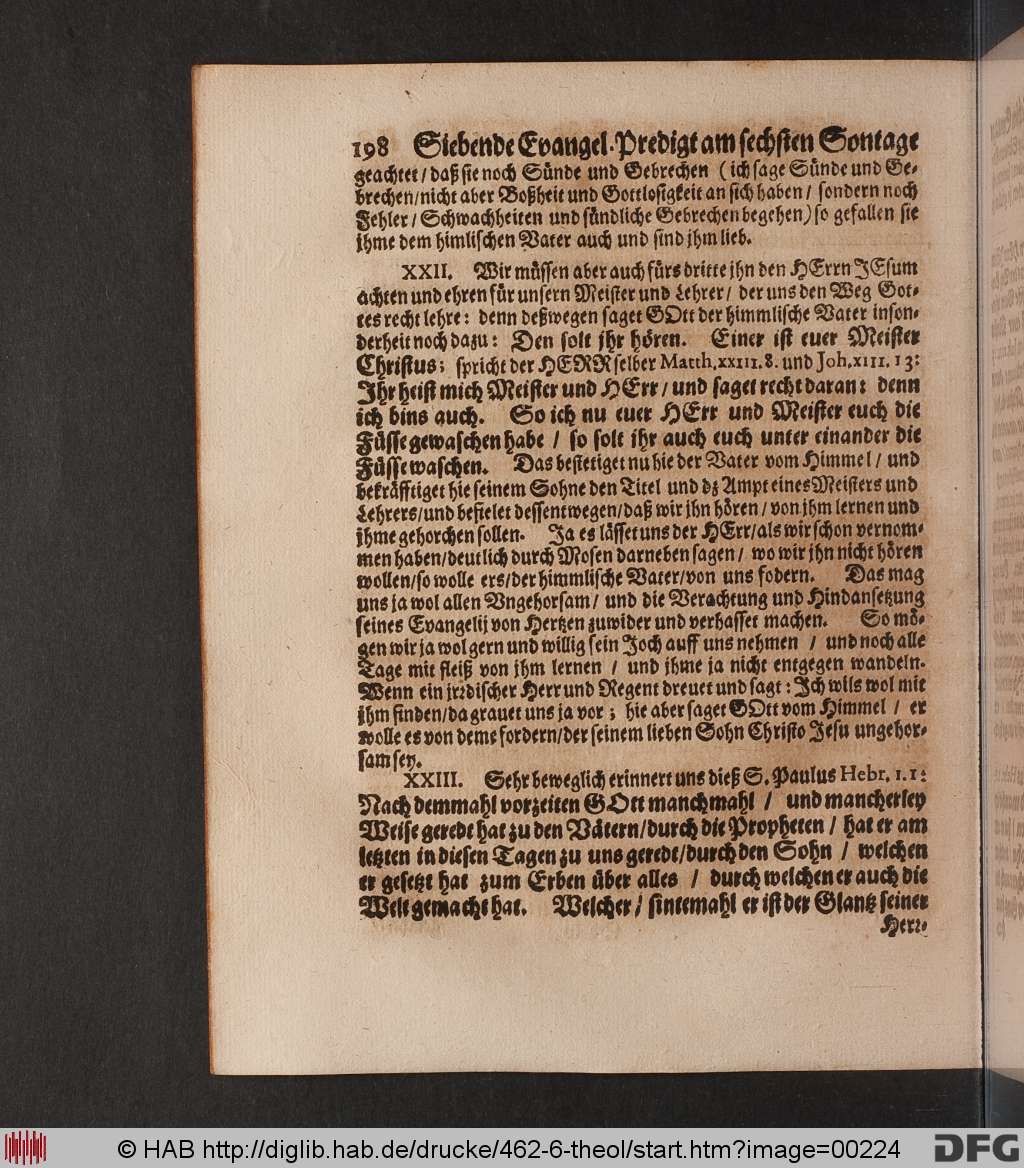 198 Siebende Evangel. Predigt am sechsten Sontage
geachtet / daß sie noch Sünde und Gebrechen ( ich sage Sünde und Ge-
brechen / nicht aber Boßheit und Gottlosigkeit an sich haben / sondern noch
Fehler / Schwachheiten und sündliche Gebrechen begehen) so gefallen sie
jhme dem himlischen Vater auch und sind jhm lieb.
XXII. Wir müssen aber auch fürs dritte jhn den HErrn JEsum
achten und ehren für unsern Meister und Lehrer / der uns den Weg Got-
tes recht lehre: denn deßwegen saget GOtt der himmlische Vater inson-
derheit noch dazu: Den solt jhr hören. Einer ist euer Meister
Christus; spricht der HERR selber Matth. XXIII. 8. und Joh. XIII. 13:
Ihr heist mich Meister und HErr / und saget recht daran: denn
ich bins auch. So ich nu euer HErr und Meister euch die
Füsse gewaschen habe / so solt jhr auch euch unter einander die
Füsse waschen. Das bestetiget nu hie der Vater vom Himmel / und
bekräfftiget hie seinem Sohne den Titel und dz Ampt eines Meisters und
Lehrers / und befielet dessentwegen / daß wir jhn hören / von jhm lernen und
jhme gehorchen sollen. Ja es lässet uns der HErr / als wir schon vernom-
men haben / deutlich durch Mosen darneben sagen / wo wir jhn nicht hören
wollen / so wolle ers / der himmlische Vater / von uns fodern. Das mag
uns ja wol allen Vngehorsam / und die Verachtung und Hindansetzung
seines Evangelij von Hertzen zuwider und verhasset machen. So mö-
gen wir ja wol gern und willig sein Joch auff uns nehmen / und noch alle
Tage mit fleiß von jhm lernen / und jhme ja nicht entgegen wandeln.
Wenn ein jrꝛdischer Herr und Regent dreuet und sagt: Ich wils wol mit
jhm finden / da grauet uns ja vor; hie aber saget GOtt vom Himmel / er
wolle es von deme fordern / der seinem lieben Sohn Christo Jesu ungehor-
sam sey.
XXIII. Sehr beweglich erinnert uns dieß S. Paulus Hebr. I. 1:
Nach demmahl vorzeiten GOtt manchmahl / und mancherley
Weise geredt hat zu den Vätern / durch die Propheten / hat er am
letzten in diesen Tagen zu uns geredt / durch den Sohn / welchen
er gesetzt hat zum Erben über alles / durch welchen er auch die
Welt gemacht hat. Welcher / sintemahl er ist der Glantz seiner
Herꝛ-
© HAB http://diglib.hab.de/drucke/462-6-theol/start.htm?image=00224
DFG